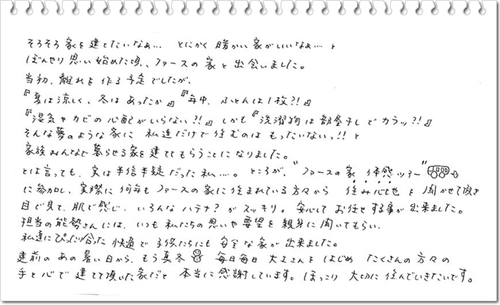 そろそろ家を建てたいなぁ… とにかく暖かい家がいいなぁ…と
ぼんやり思い始めた頃、ファースの家と出会いました。
当初、離れを作る予定でしたが、
『夏は涼しく、冬はあったか』『年中、ふとんは1枚?!』
『湿気やカビの心配がいらない?!』しかも『洗濯物は部屋干しでカラッ?!』
そんな夢のような家に 私達だけで住むのはもったいないっ!!と
家族みんなで暮らせる家を建ててもらうことになりました。
とは言っても、実は半信半疑だった私…。ところが、"ファースの家 体感ツアー"
に参加し、実際に何年もファースの家に住まれている方々から 住み心地を聞かせて頂き
目で見て、肌で感じ、いろんなハテナ?がスッキリ。安心してお任せする事が出来ました。
担当の能勢さんには、いつも私たちの思いや要望を親身に聞いてもらい、
私達にぴったり合った快適で子供たちにも安全な家が出来ました。
建前のあの暑い日から、もう真冬 毎日毎日 大工さんをはじめ たくさんの方々の
手と心で建てて頂いた家だと 本当に感謝しています。ほっこり 大切に住んでいきたいです。